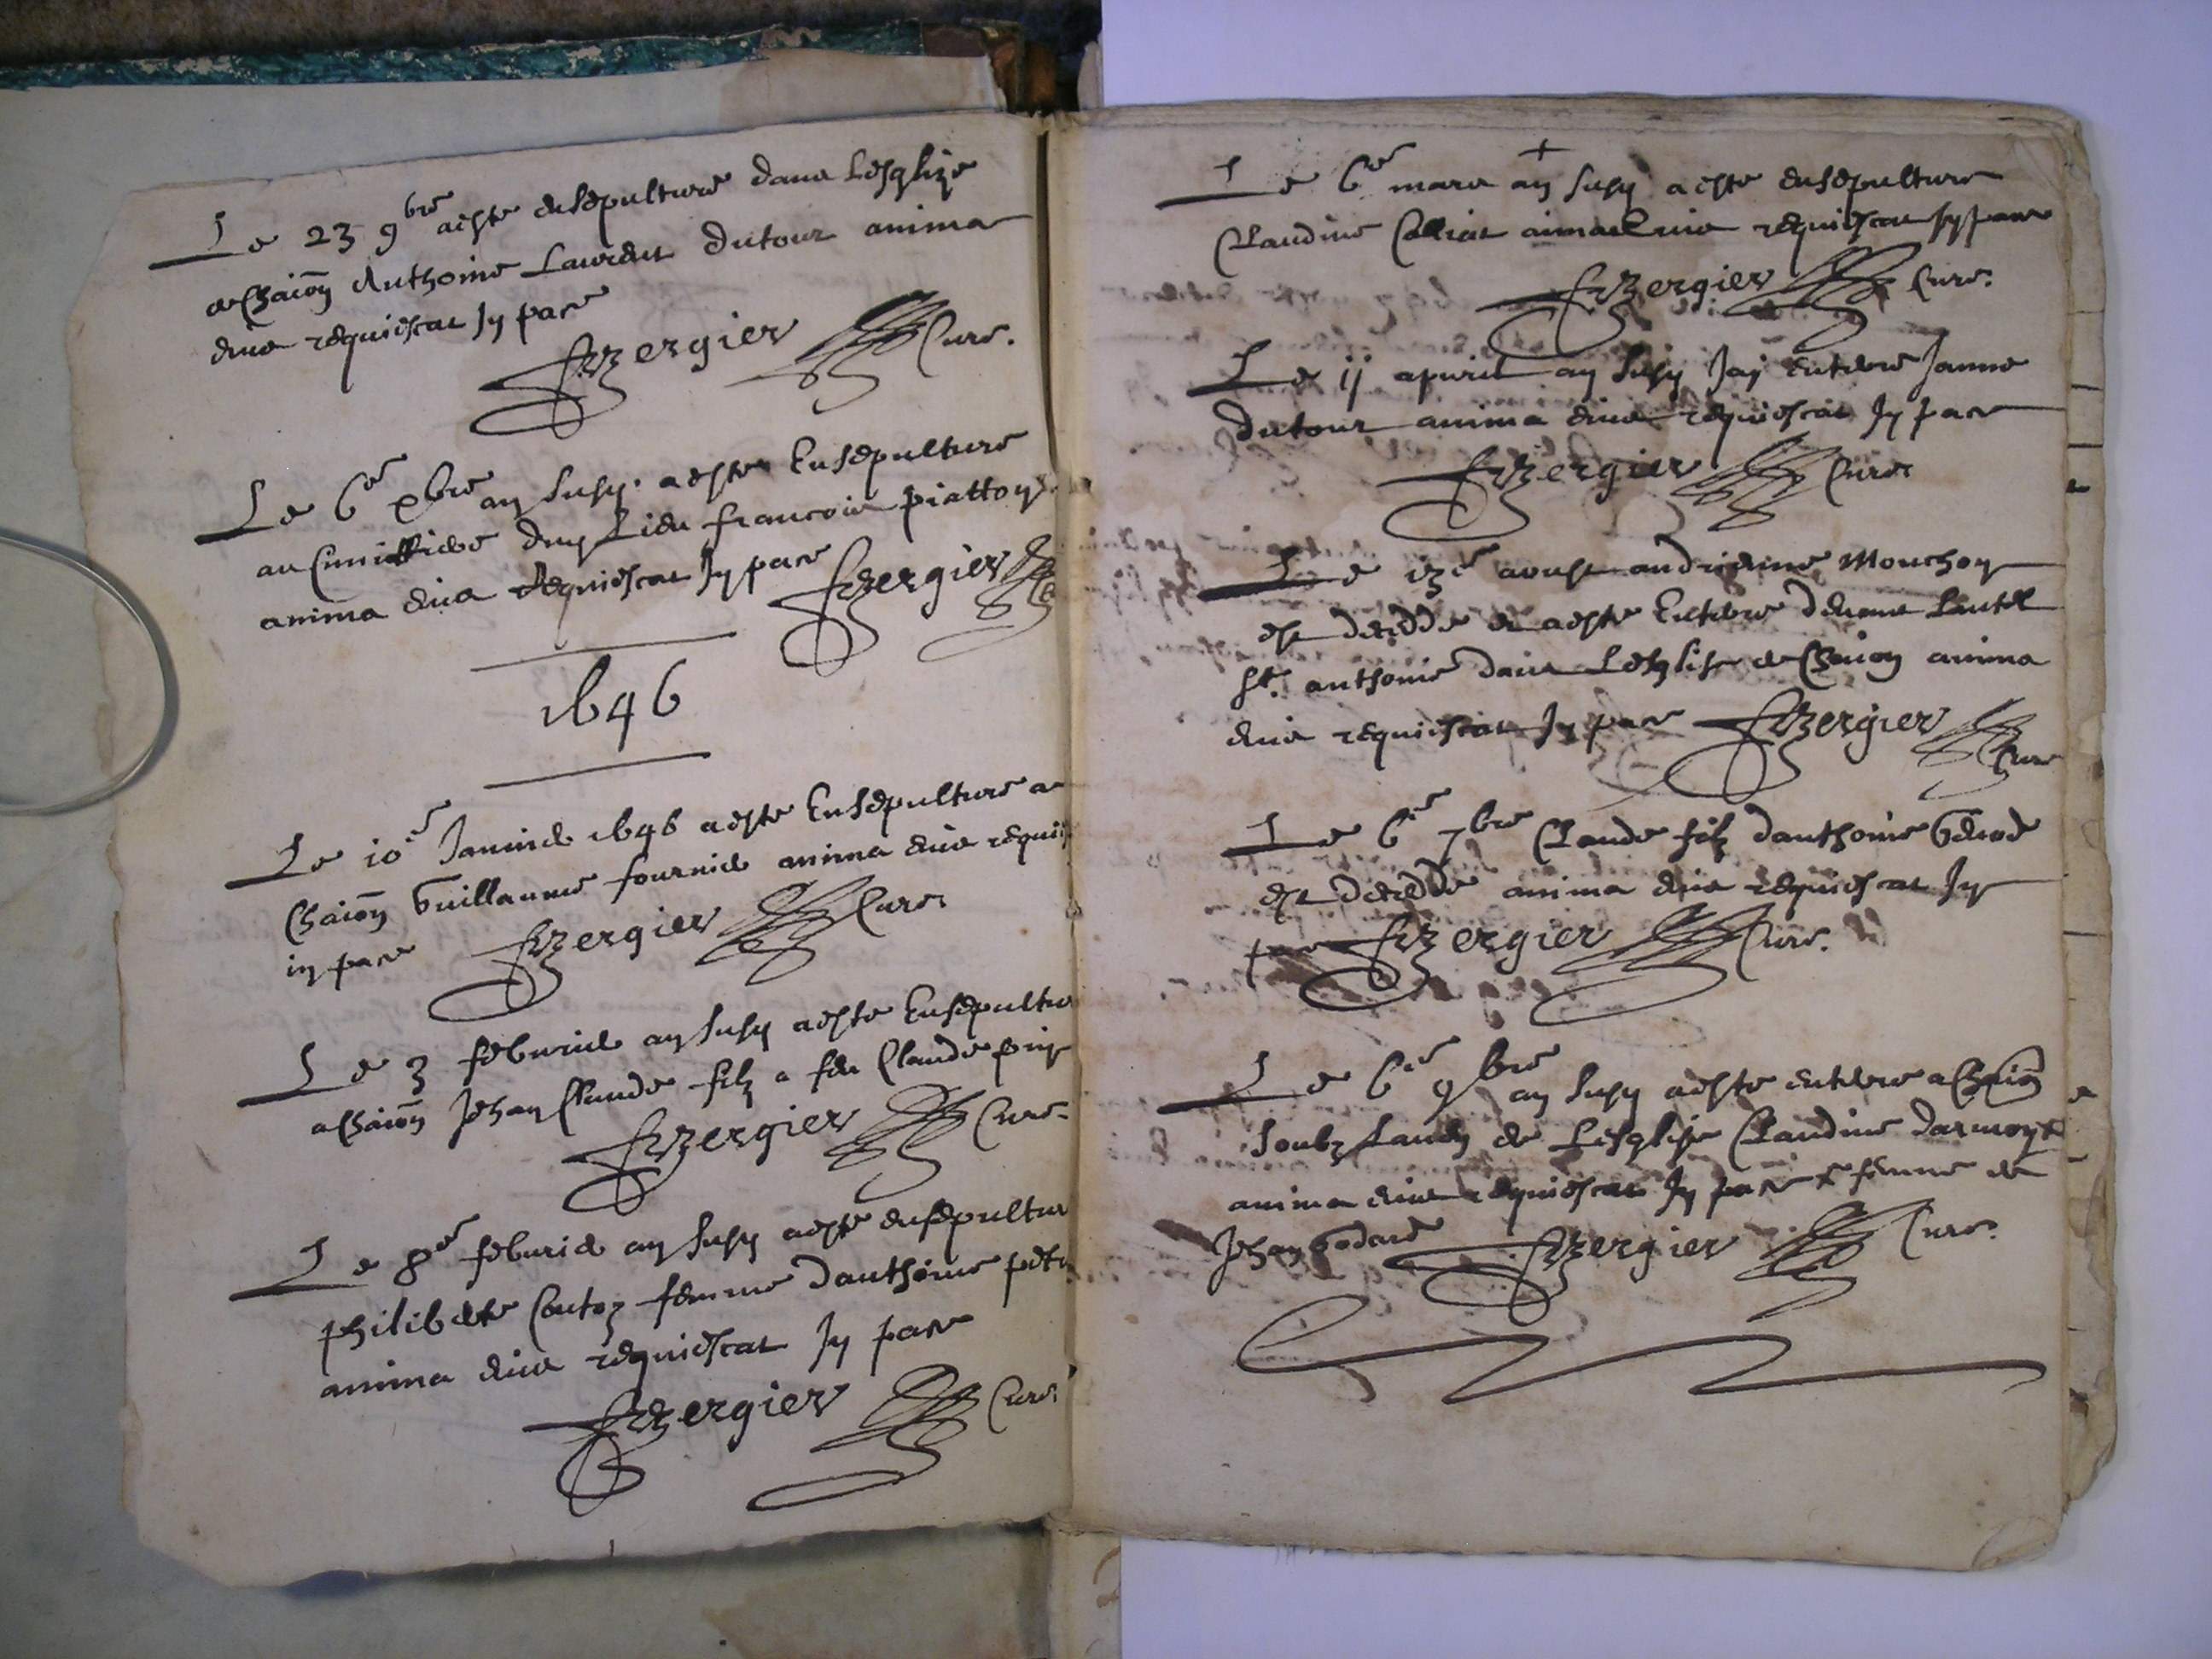 Le 23 9bre aeste ensepulture dans Lesglize
de Chaion Anthoine Laurent dutour anima
eius requiescat Jn pace
Bergier Cure.
Le 6e xbre an susy. aeste Ensepulture
au Cimittiere dun Lieu francois piatton
anima eius Requiescat Jn pace Bergier
1646
Le 10e Januier 1646 aeste Ensepulture a
Chaion Guillaume fournier anima eius requies
in pace Bergier Cure.
Le 3 feburier an susy aeste Ensepultu
a Chaion Jehan Claude filz a feu Claude
Bergier Cure.
Le 8e feburier an susy aeste ensepultur
philiberte femme danthoine
anima eius requiescat Jn pace
Bergier Cure.
Le 6e mars an susy a este ensepulture
Claudine anima eius requiescat Jn pace
Bergier Cure.
Le ij apuril an susy Jay enterre Janne
dutour anima eius requiescat Jn pace
Bergier Cure.
Le 13e aoust andrienne Mouchon
est decedde et aeste Enterre deuant Lautel
st. anthoine dans Lesglise de Chaion anima
eius requiescat Jn pace Bergier Cure
Le 6e 7bre Claude filz danthoine
est decedde anima eius requiescat Jn
pace Bergier Cure.
Le 6e 9bre an susy aeste enterre a Chaion
soubz de Lesglise Claudine
anima eius requiescat Jn pace femme de
Jehan Godard Bergier Cure.